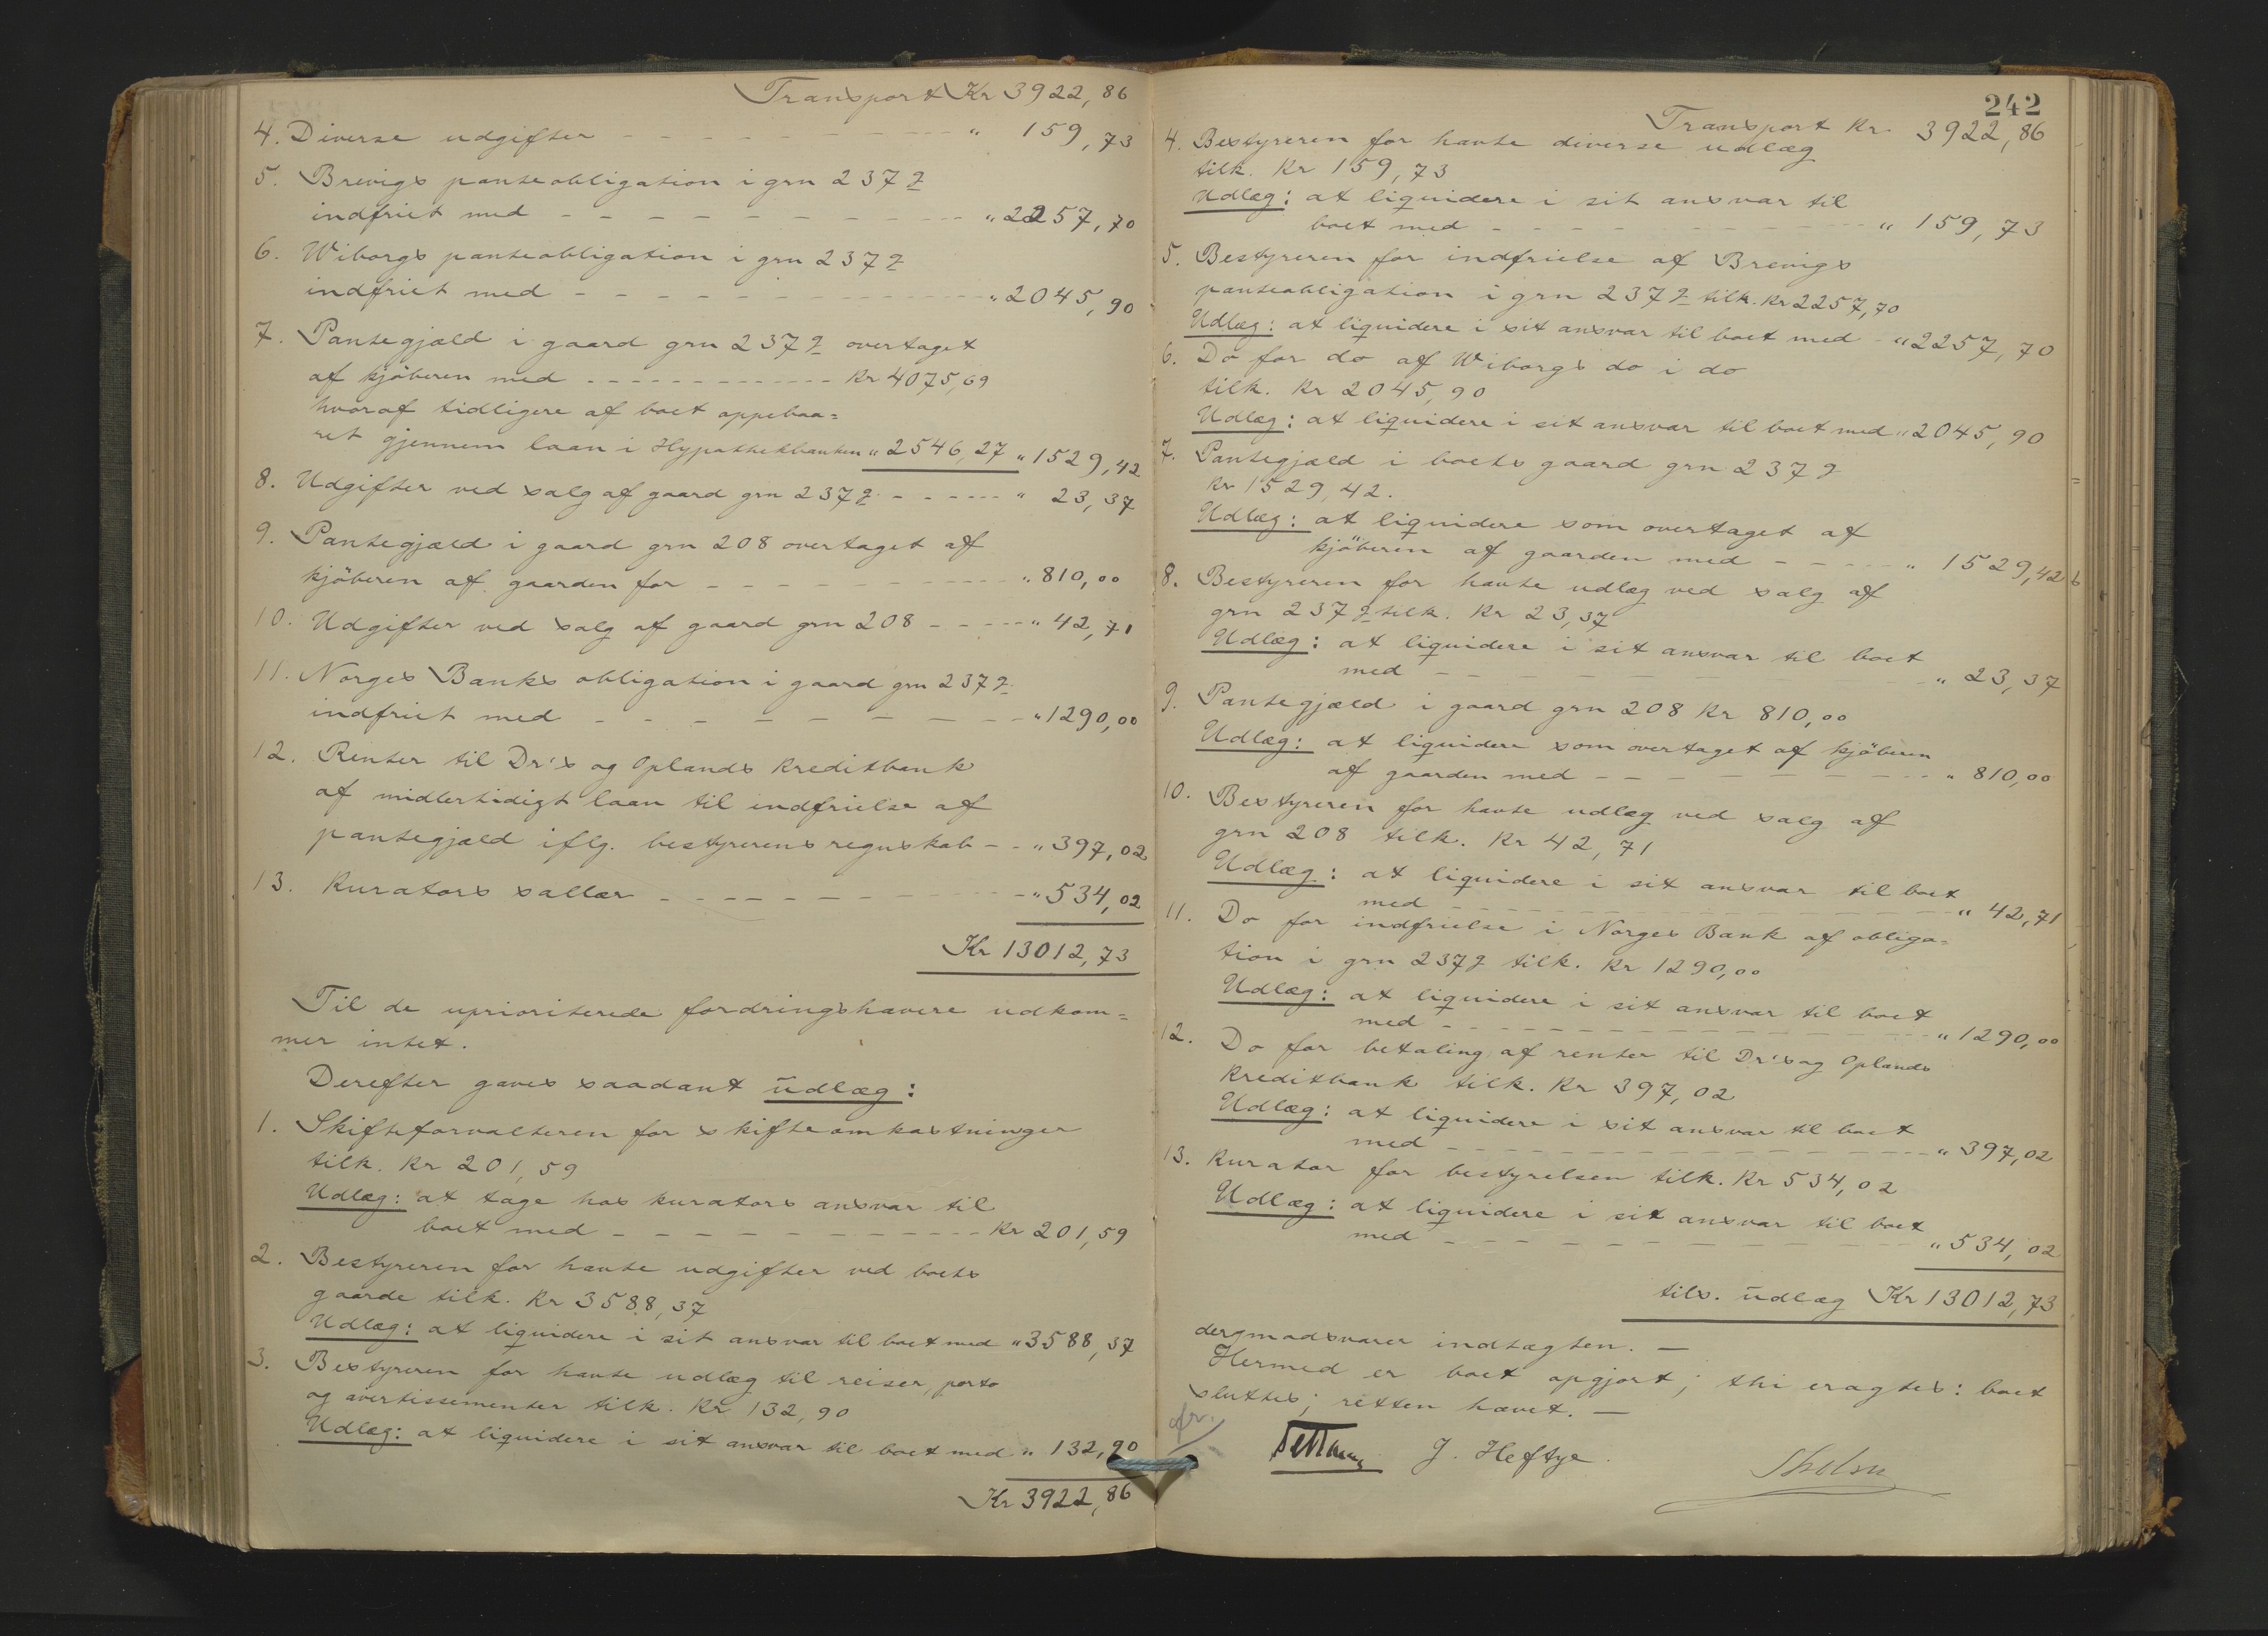 Transport Kr 3922,86
4. Diverse udgifter - - - - - - - - - " 159,73
5. Brevigs panteobligation i grn 237 2
indfriet med - - - - - - - - - " 2257,70
6. Wiborgs panteobligation i grn 237 2
indfriet med - - - - - - - - - " 2045,90
7. Pantegjæld i gaard grn 237 2 overtaget
af kjöberen med - - - - - - Kr 4075,69
hvoraf tidligere af boet oppebaa=
ret gjennem laan i Hypothekbanken " 2546,27 " 1529,42
8. Udgifter ved salg af gaard grn 237 2 - - - - " 23,37
9. Pantegjæld i gaard grn 208 overtaget af
kjöberen af gaarden for - - - - - - - " 810,00
10. Udgifter ved salg af gaard grn 208 - - - - " 42,71
11. Norges Banks obligation i gaard grn 237 2
indfriet med - - - - - - - - - " 1290,00
12. Renter til Dr's og Oplands Kreditbank
af midlertidigt laan til indfrielse af
pantegjæld iflg. bestyrerens regnskab - - " 397,02
13. Kurators sallær - - - - - - - - - " 534,02
Kr 13012,73
Til de uprioriterede fordringshavere udkom=
mer intet.
Derefter gaves saadant udlæg:
1. Skifteforvalteren for skifteomkostninger
tilk. Kr 201,59
Udlæg: at tage hos kurators ansvar til
boet med - - - - - - - - - Kr 201,59
2. Bestyreren for havte udgifter ved boets
gaarde tilk. Kr 3588,37
Udlæg: at liquidere i sit ansvar til boet med " 3588,37
3. Bestyreren for havte udlæg til reiser, porto
og avertissementer tilk. Kr 132,90
Udlæg: at liquidere i sit ansvar til boet med " 132,90
Kr 3922,86
242
Transport Kr 3922,86
4. Bestyreren for havte diverse udlæg
tilk. Kr 159,73
Udlæg: at liquidere i sit ansvar til
boet med - - - - - - - - - " 159,73
5. Bestyreren for indfrielse af Brevigs
panteobligation i grn 237 2 tilk. Kr 2257,70
Udlæg: at liquidere i sit ansvar til boet med - " 2257,70
6. Do for do af Wiborgs do i do
tilk. Kr 2045,90
Udlæg: at liquidere i sit ansvar til boet med " 2045,90
7. Pantegjæld i boets gaard grn 237 2
Kr 1529,42.
Udlæg: at liquidere som overtaget af
kjöberen af gaarden med - - - - " 1529,42
8. Bestyreren for havte udlæg ved salg af
grn 237 2 tilk. Kr 23,37
Udlæg: at liquidere i sit ansvar til boet
med - - - - - - - - - " 23,37
9. Pantegjæld i gaard grn 208 Kr 810,00
Udlæg: at liquidere som overtaget af kjöberen
af gaarden med - - - - - - - " 810,00
10. Bestyreren for havte udlæg ved salg af
grn 208 tilk. Kr 42,71
Udlæg: at liquidere i sit ansvar til boet
med - - - - - - - - - " 42,71
11. Do for indfrielse i Norges Bank af obliga=
tion i grn 237 2 tilk. Kr 1290,00
Udlæg: at liquidere i sit ansvar til boet
med - - - - - - - - - " 1290,00
12. Do for betaling af renter til Dr's og Oplands
Kreditbank tilk. Kr 397,02
Udlæg: at liquidere i sit ansvar til boet
med - - - - - - - - - " 397,02
13. Kurator for bestyrelsen tilk. Kr 534,02
Udlæg: at liquidere i sit ansvar til boet
med - - - - - - - - - " 534,02
tils. udlæg Kr 13012,73
der modsvarer indtægten. -
Hermed er boet opgjort; thi eragtes: boet
sluttes; retten hævet. -
J. Heftye.